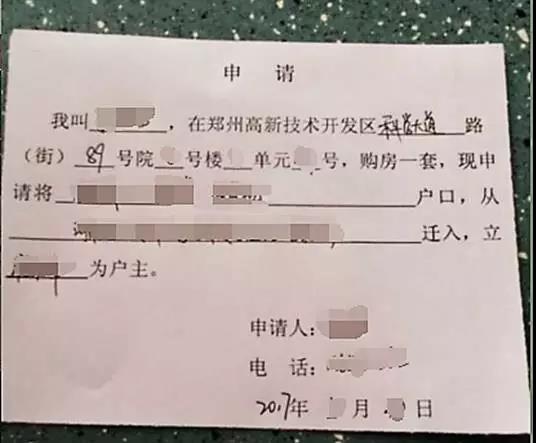 申 请
我叫，在郑州高新技术开发区科学大道路
（街）89号院号楼单元号，购房一套，现申
请将户口，从
迁入，立
为户主。
申请人：
电 话：
2017年月日